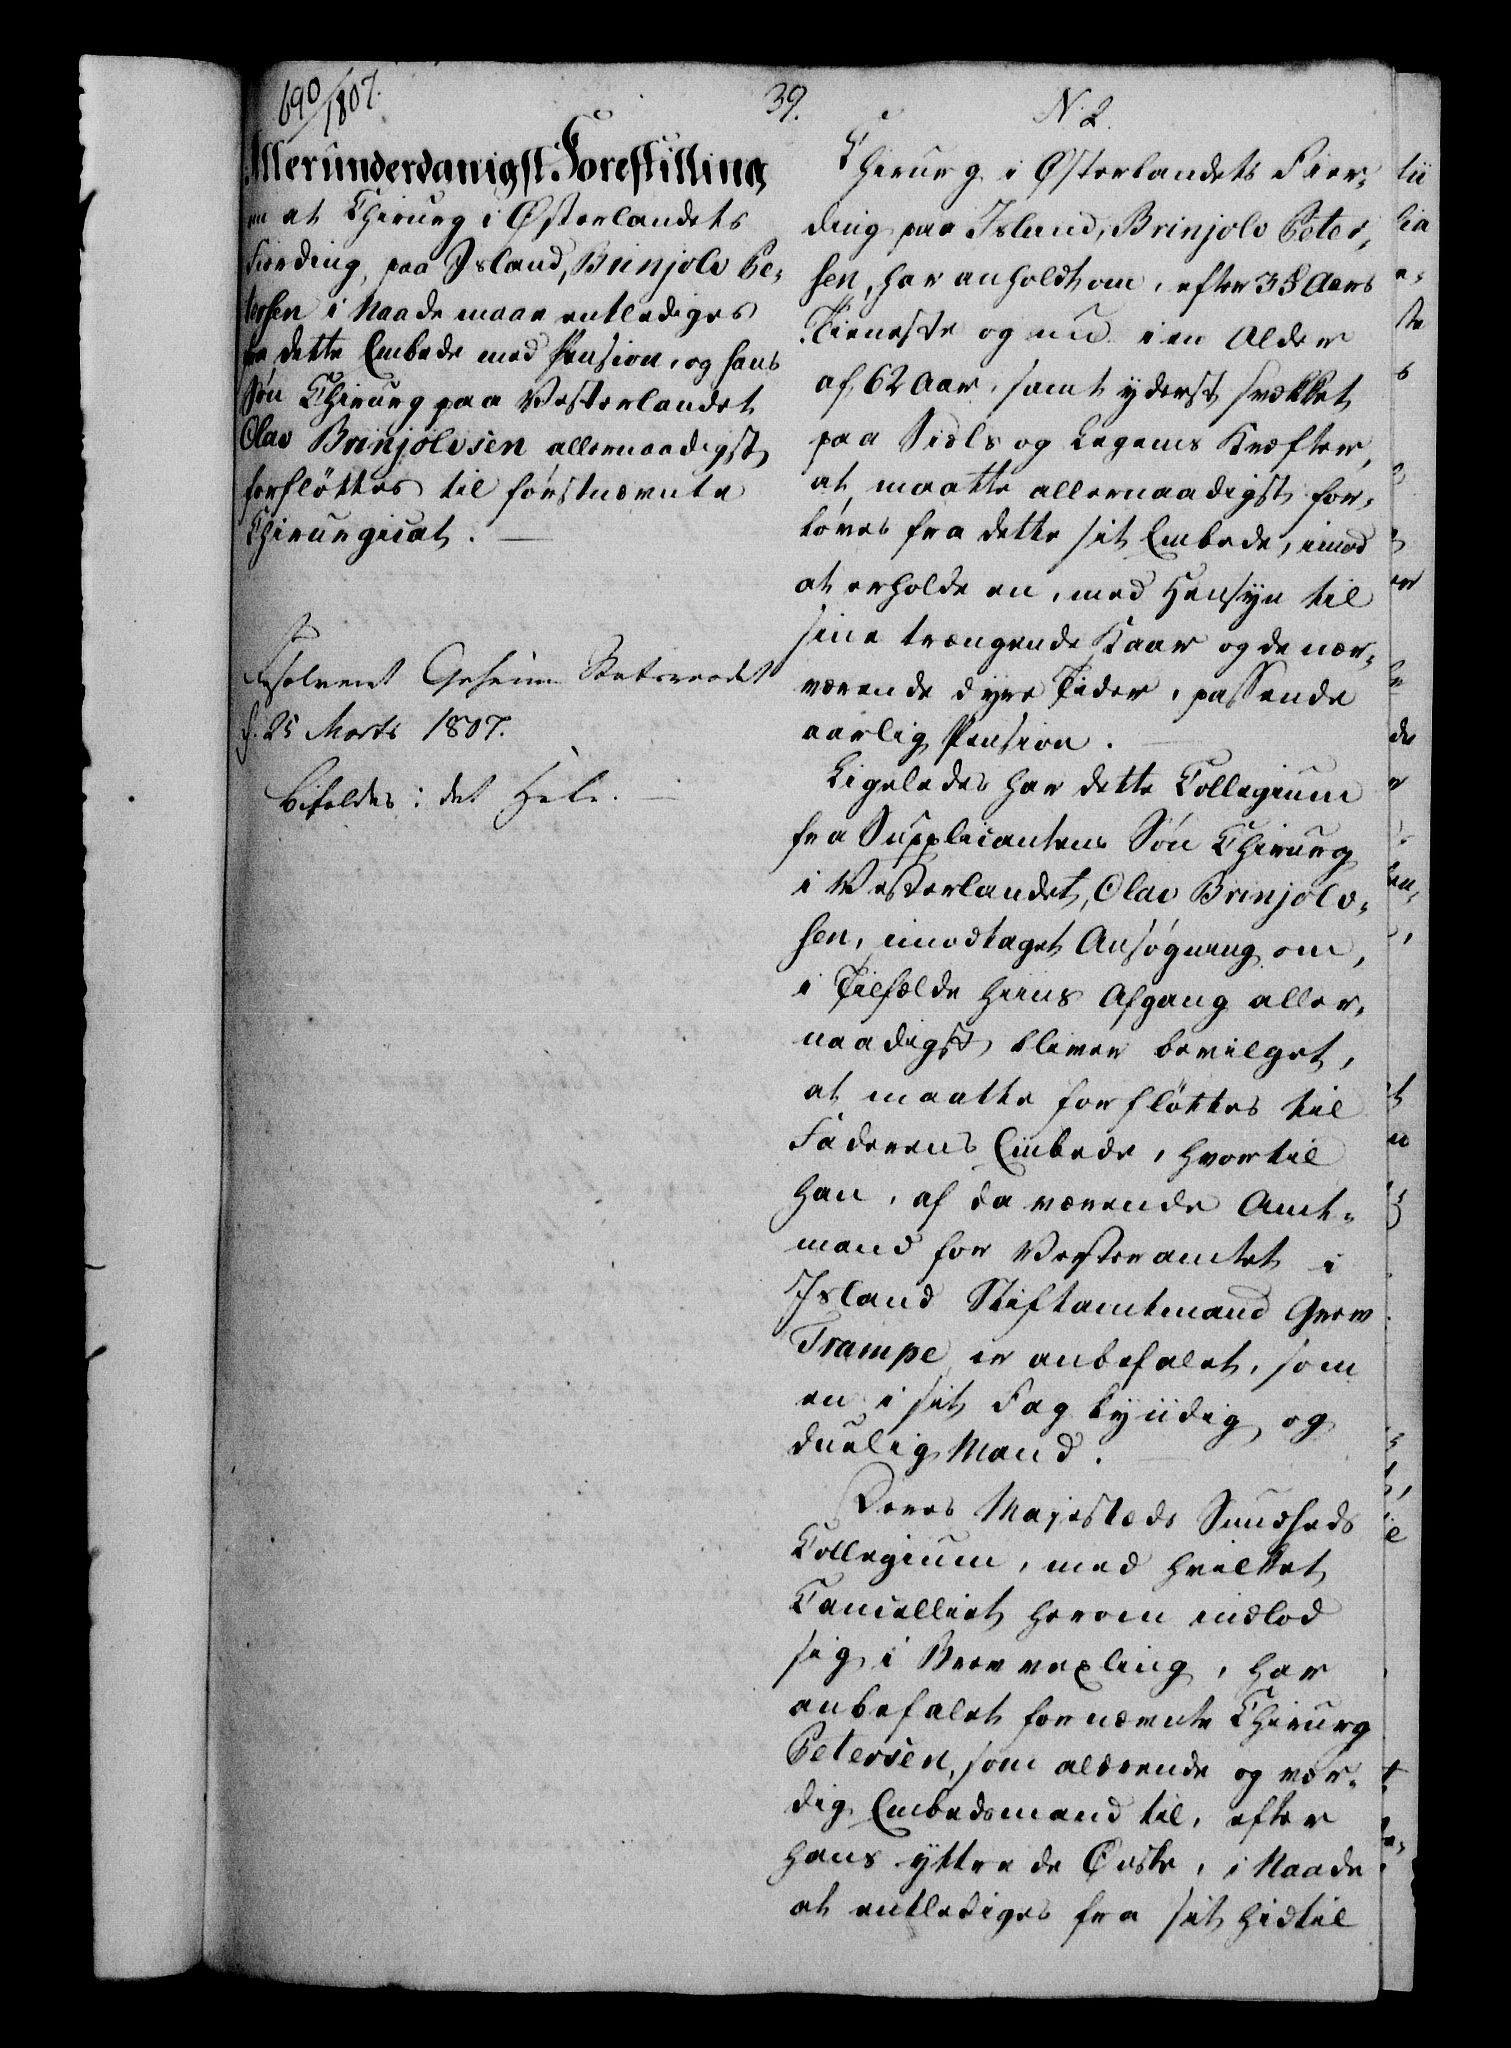 690/1807.
39.
N. 2.
Allerunderdanigst Forestilling
om at Chirurg i Østerlandets
Fierding, paa Island, Brinjolv Pe-
tersen i Naade maae entlediges
fra dette Embede med Pension, og hans
Søn Chirurg paa Vesterlandet
Olav Brinjolvsen allernaadigst
forflöttes til förstnævnte
Chirurgicat. —
Resolveret Geheime Statsraadet
d. 25 Marts 1807.
Bifaldes i det Hele. —
Chirurg i Østerlandets Fier-
ding paa Island, Brinjolv Peter-
sen, har anholdt om, efter 38 Aars
Tieneste og nu i en Alder
af 62 Aar, samt yderst svækket
paa Siæls og Legems Kræfter,
at maatte allernaadigst for-
löves fra dette sit Embede, imod
at erholde en, med Hensyn til
sine trængende Kaar og de nær-
værende dyre Tider, passende
aarlig Pension. —
Ligeledes har dette Collegium
fra Supplicantens Søn Chirurg
i Vesterlandet, Olav Brinjolv-
sen, imodtaget Ansögning om,
i Tilfælde hiins Afgang aller-
naadigst bliver bevilget,
at maatte forflöttes til
Faderens Embede, hvortil
han, af da værende Amt-
mand for Vesteramtet i
Island Stiftamtmand Grev
Trampe er anbefalet, som
en i sit Fag kyndig og
duelig Mand. —
Deres Majestæds Sundheds
Collegium, med hvilket
Cancelliet herom indlod
sig i Brevvexling, har
anbefalet fornævnte Chirurg
Petersen, som aldrende og vær-
dig Embedsmand til, efter
hans yttrede Önske, i Naade
at entlediges fra sit hidtil